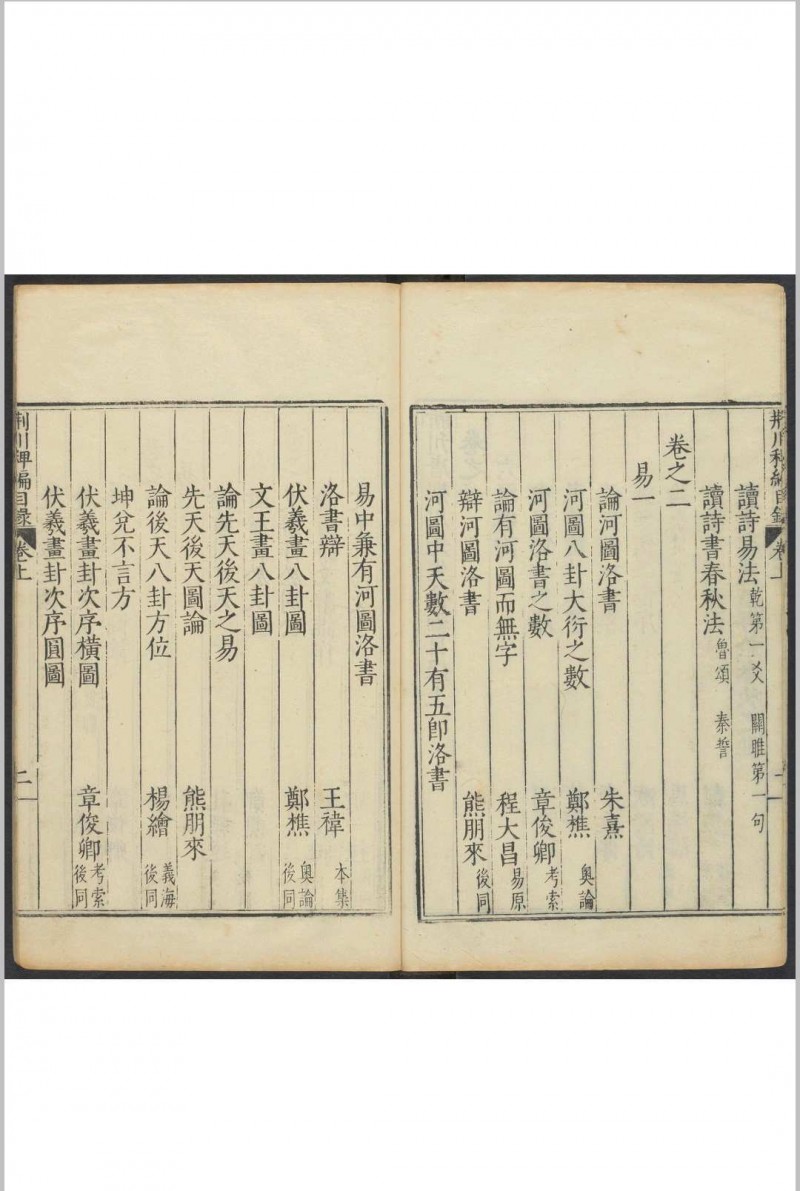 荊川稗編目錄 卷上
讀詩易法 乾第一爻 關雎第一句
讀詩書春秋法 魯頌 秦誓
卷之二
易一
論河圖洛書 朱熹
河圖八卦大衍之數 鄭樵 奥論
河圖洛書之數 章俊卿 考索
論有河圖而無字 程大昌 易原
辯河圖洛書 熊朋來 後同
河圖中天數二十有五卽洛書
易中兼有河圖洛書
洛書辯 王禕 本集
伏羲畫八卦圖 鄭樵 奥論後同
文王畫八卦圖
論先天後天之易
先天後天圖論 熊朋來
論後天八卦方位 楊繪 義海後同
坤兌不言方
伏羲畫卦次序橫圖 章俊卿 考索後同
伏羲畫卦次序圓圖
荊川稗編目錄 卷上 二